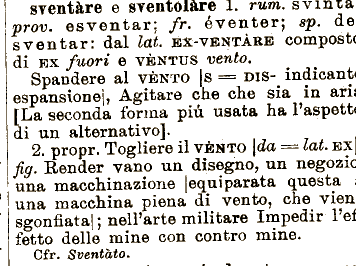 sventàre e sventolàre 1. rum. svinta
prov. esventar; fr. éventer; sp. de
sventar: dal lat. EX-VENTÀRE compost
di EX fuori e VÈNTUS vento.
Spandere al VÈNTO |S = DIS- indicant
espansione|, Agitare che che sia in aria
[La seconda forma piú usata ha l'aspett
di un alternativo].
2. propr. Togliere il VÈNTO |da = lat. EX|
fig. Render vano un disegno, un negozio
una macchinazione |equiparata questa
una macchina piena di vento, che vien
sgonfiata|; nell'arte militare Impedir l'ef
fetto delle mine con contro mine.
Cfr. Sventàto.